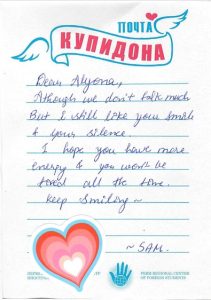 ПОЧТА
КУПИДОНА
Dear Alyona,
Athough we don't talk much
But I still like your smile
& your silence.
I hope you have more
energy & you won't be
tired all the time.
Keep Smiling~
~ SAM.
PERM REGIONAL CENTER
OF FOREIGN STUDENTS